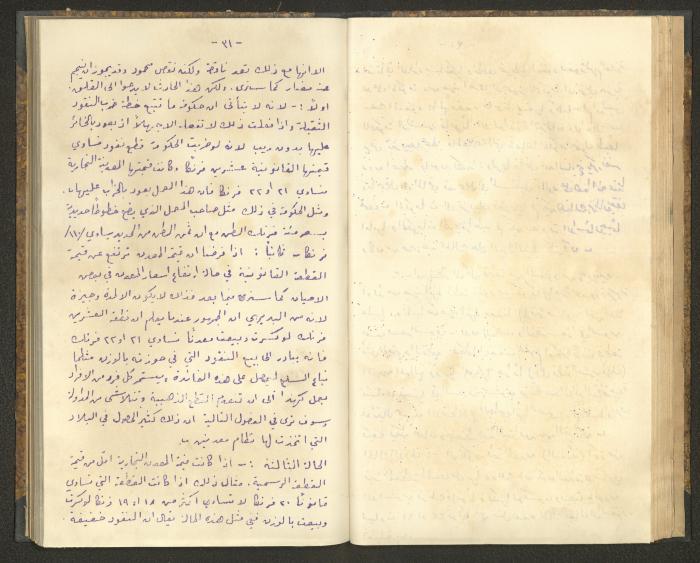 - ٣١ -
الا انها مع ذلك تعد ناقصة ولكنه نقص محمود وقد يجوز ان ينجم
عنه مضار كما سنرى. ولكن هذا الحادث لا يدعو الى القلق:
اولاً :- لانه لا يتأتى ان حكومة ما تتبع خطة ضرب النقود
الثقيلة واذا فعلت ذلك لا تفعله الا جهلاً اذ يعود بالخسائر
عليها بدون ريب لانه لو ضربت الحكومة قطع نقود تساوي
قيمتها القانونية عشرين فرنكًا وكانت قيمتها المعدنية التجارية
تساوي ٢١ او ٢٢ فرنكًا فان هذا العمل يعود بالخراب عليها.
ومثل الحكومة في ذلك مثل صاحب المعمل الذي يضع خطوطًا حديدية
بـ مئة فرنك الطن مع ان ثمن الطن من الحديد يساوي
فرنكات ثانيًا : اذا فرضنا ان قيمة المعدن ترتفع عن قيمة
القطعة القانونية في حالة ارتفاع اسعار المعدن في بعض
الاحيان كما سنرى فيما بعد فذلك لا يكون الا لمدة وجيزة
لانه من البديهي ان الجمهور عندما يعلم ان قطعة العشرين
فرنك لو كسرت وبيعت معدنًا تساوي ٢١ او ٢٢ فرنك
فانه يبادر الى بيع النقود التي في حوزته بالوزن مثلما
تباع السلع ليحصل على هذه الفائدة ويستمر كل فرد من الافراد
بعمل كهذا الى ان تنعدم القطع الذهبية وتتلاشى من التداول
وسوف نرى في الفصول التالية ان ذلك كثير الحصول في البلاد
التي اتخذت لها نظام معدنين
الحالة الثالثة :- اذا كانت قيمة المعدن التجارية اقل من قيمة
القطعة الرسمية. مثال ذلك اذا كانت القطعة التي تساوي
قانونًا ٢٠ فرنكًا لا تساوي اكثر من ١٨ او ١٩ فرنكا لو كسرت
وبيعت بالوزن ففي مثل هذه الحالة يقال ان النقود خفيفة.